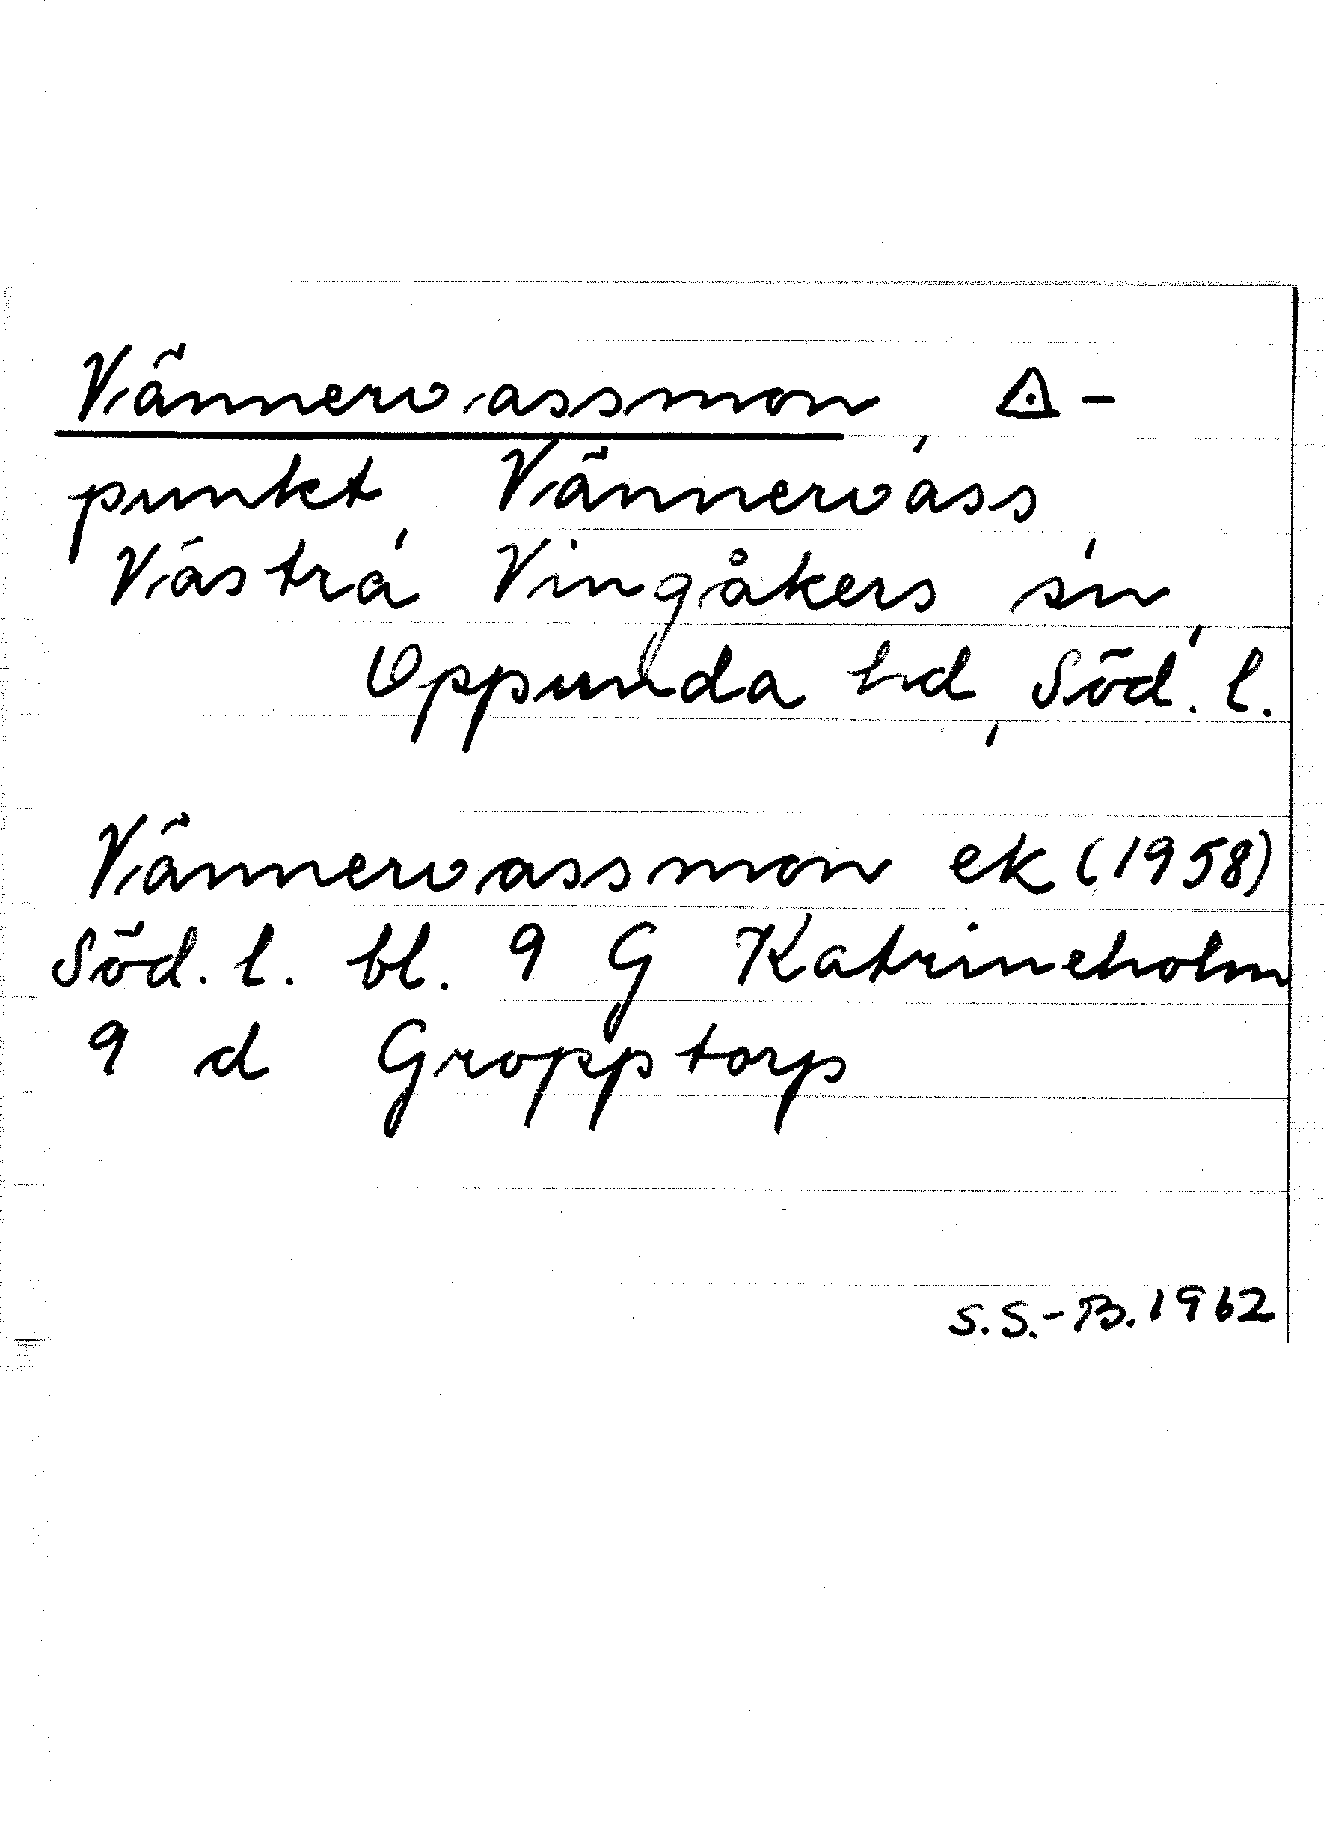 Vännervassmon, △-
punkt, Vännervass,
Västra Vingåkers sn,
Oppunda hd, Söd. l.
Vännervassmon ek (1958)
Söd. l. bl. 9 G Katrineholm
9 d Gropptorp
S.S.-B. 1962